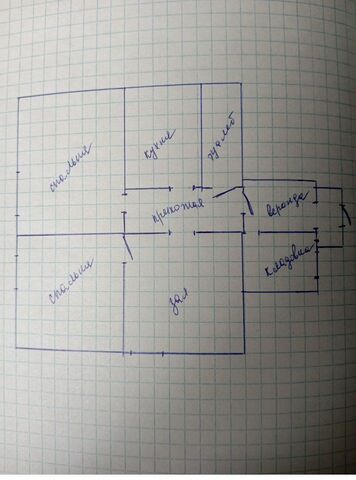 спальня
кухня
туалет
прихожая
веранда
кладовка
спальня
зал